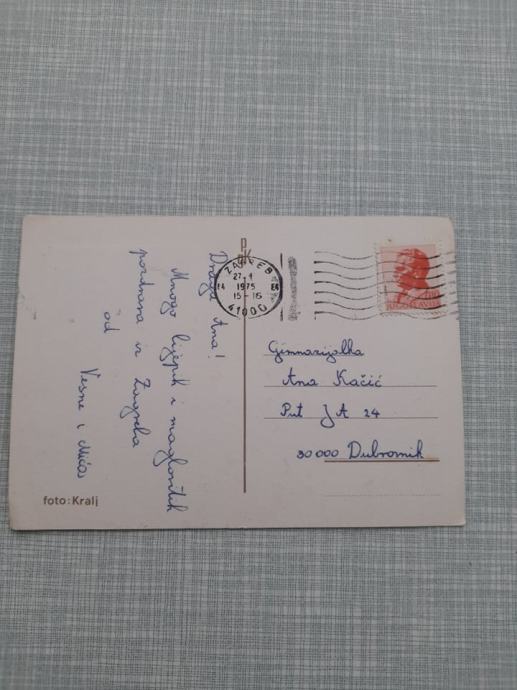 Draga Ana!
Mnogo lijepih i maglovitih
pozdrava iz Zagreba
od
Vesne i
foto: Kralj
ZAGREB
27.1
1975
15-16
41000
JUGOSLAVIJA
Gimnazijalka
Ana Kačić
Put JA 24
50000 Dubrovnik